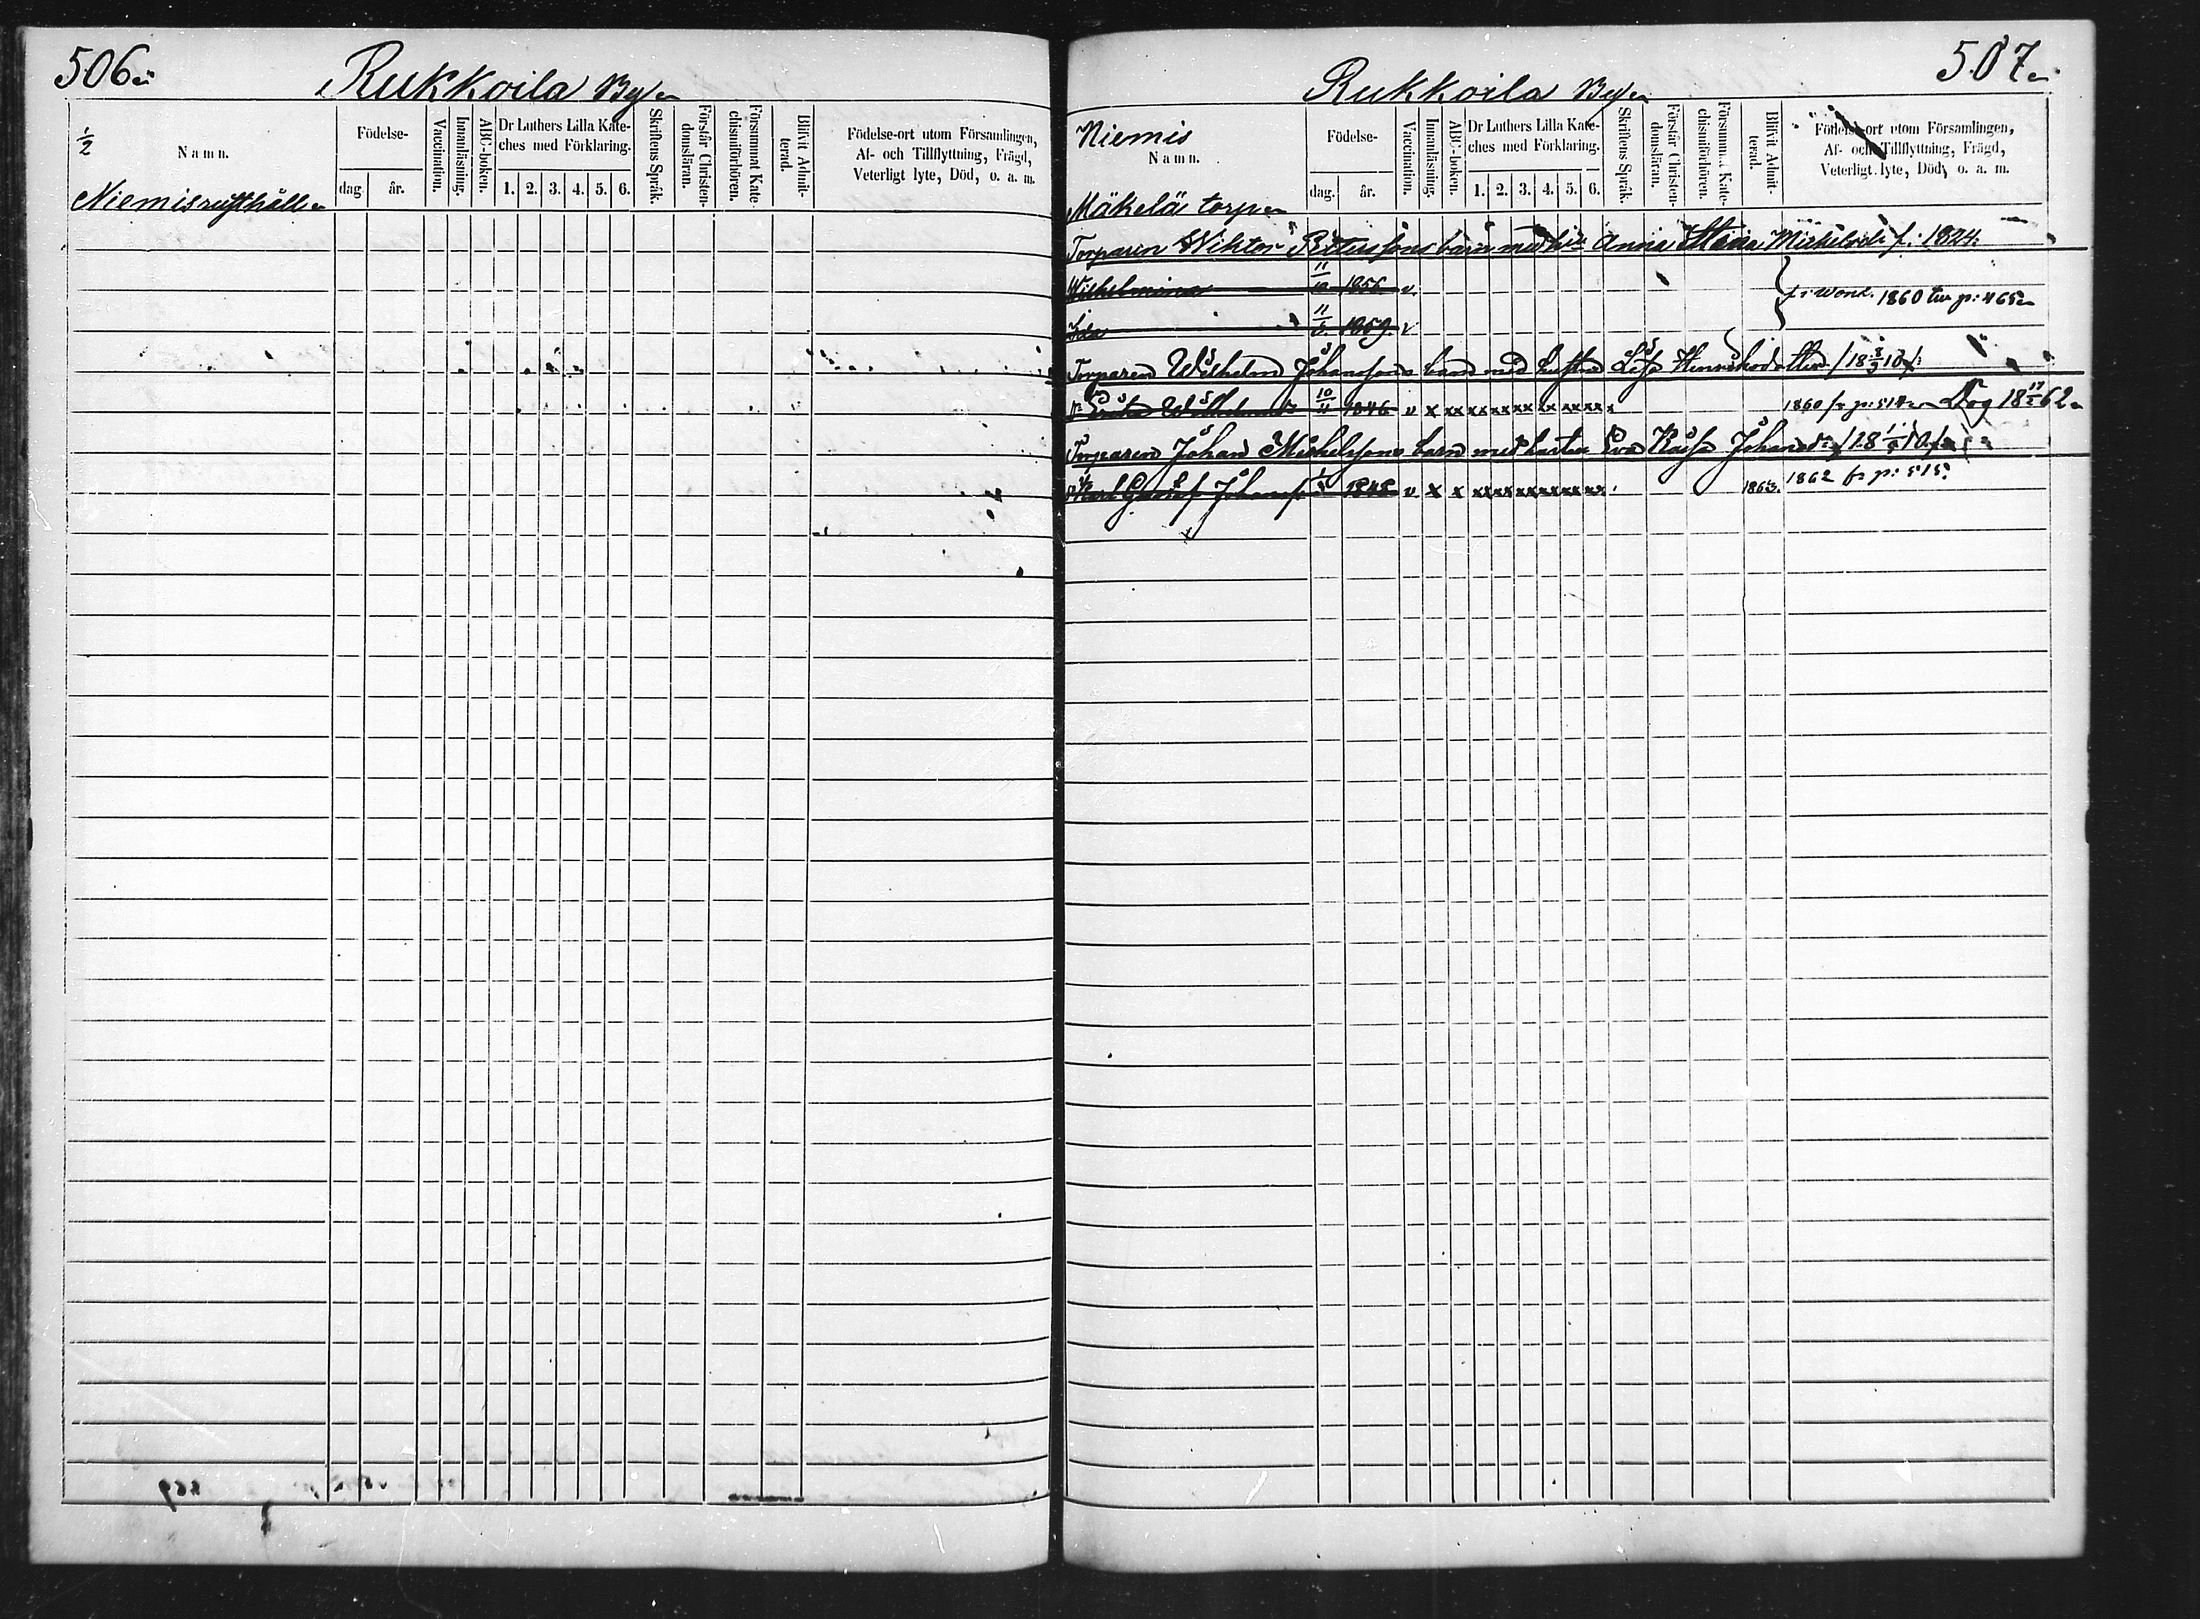 506.
Rukkoila By
1/2
Namn.
Födelse-
dag. år.
Vaccination.
Innanläsning.
ABC-boken.
Dr Luthers Lilla Kate-
ches med Förklaring.
1. 2. 3. 4. 5. 6.
Skriftens Språk.
Förstår Christen-
domsläran.
Försummat Kate-
chismiförhören.
Blifvit Admit-
terad.
Födelse-ort utom Församlingen,
Af- och Tillflyttning, Frägd,
Veterligt lyte, Död, o. a. m.
Niemis rusthåll
269
507.
Rukkoila By
Niemis
Namn.
Födelse-
dag. år.
Vaccination.
Innanläsning.
ABC-boken.
Dr Luthers Lilla Kate-
ches med Förklaring.
1. 2. 3. 4. 5. 6.
Skriftens Språk.
Förstår Christen-
domsläran.
Försummat Kate-
chismiförhören.
Blifvit Admit-
terad.
Födelse-ort utom Församlingen,
Af- och Tillflyttning, Frägd,
Veterligt lyte, Död, o. a. m.
Mäkelä torp
Torparen Wiktor Peterssons barn med Anna Maria Mickelsd. f. 1824.
Wilhelmina 11/10 1856 v
1860 p: 465
11/5 1859. v
Torparen Wilhelm Johanssons barn med hustru Lisa Henriksdotter /18 8/3 10/:
Wilhelm 10/11 1846 v x xx xx xx xx xx xx xx 1860 fr p: 514 Dog 18 17/5 62
Torparen Johan Mickelssons barn med hustru Eva Kaisa Johansdr
Karl Gustaf Johansson 1845 v x x xx xx xx xx xx xx 1863. 1862 fr p: 515.